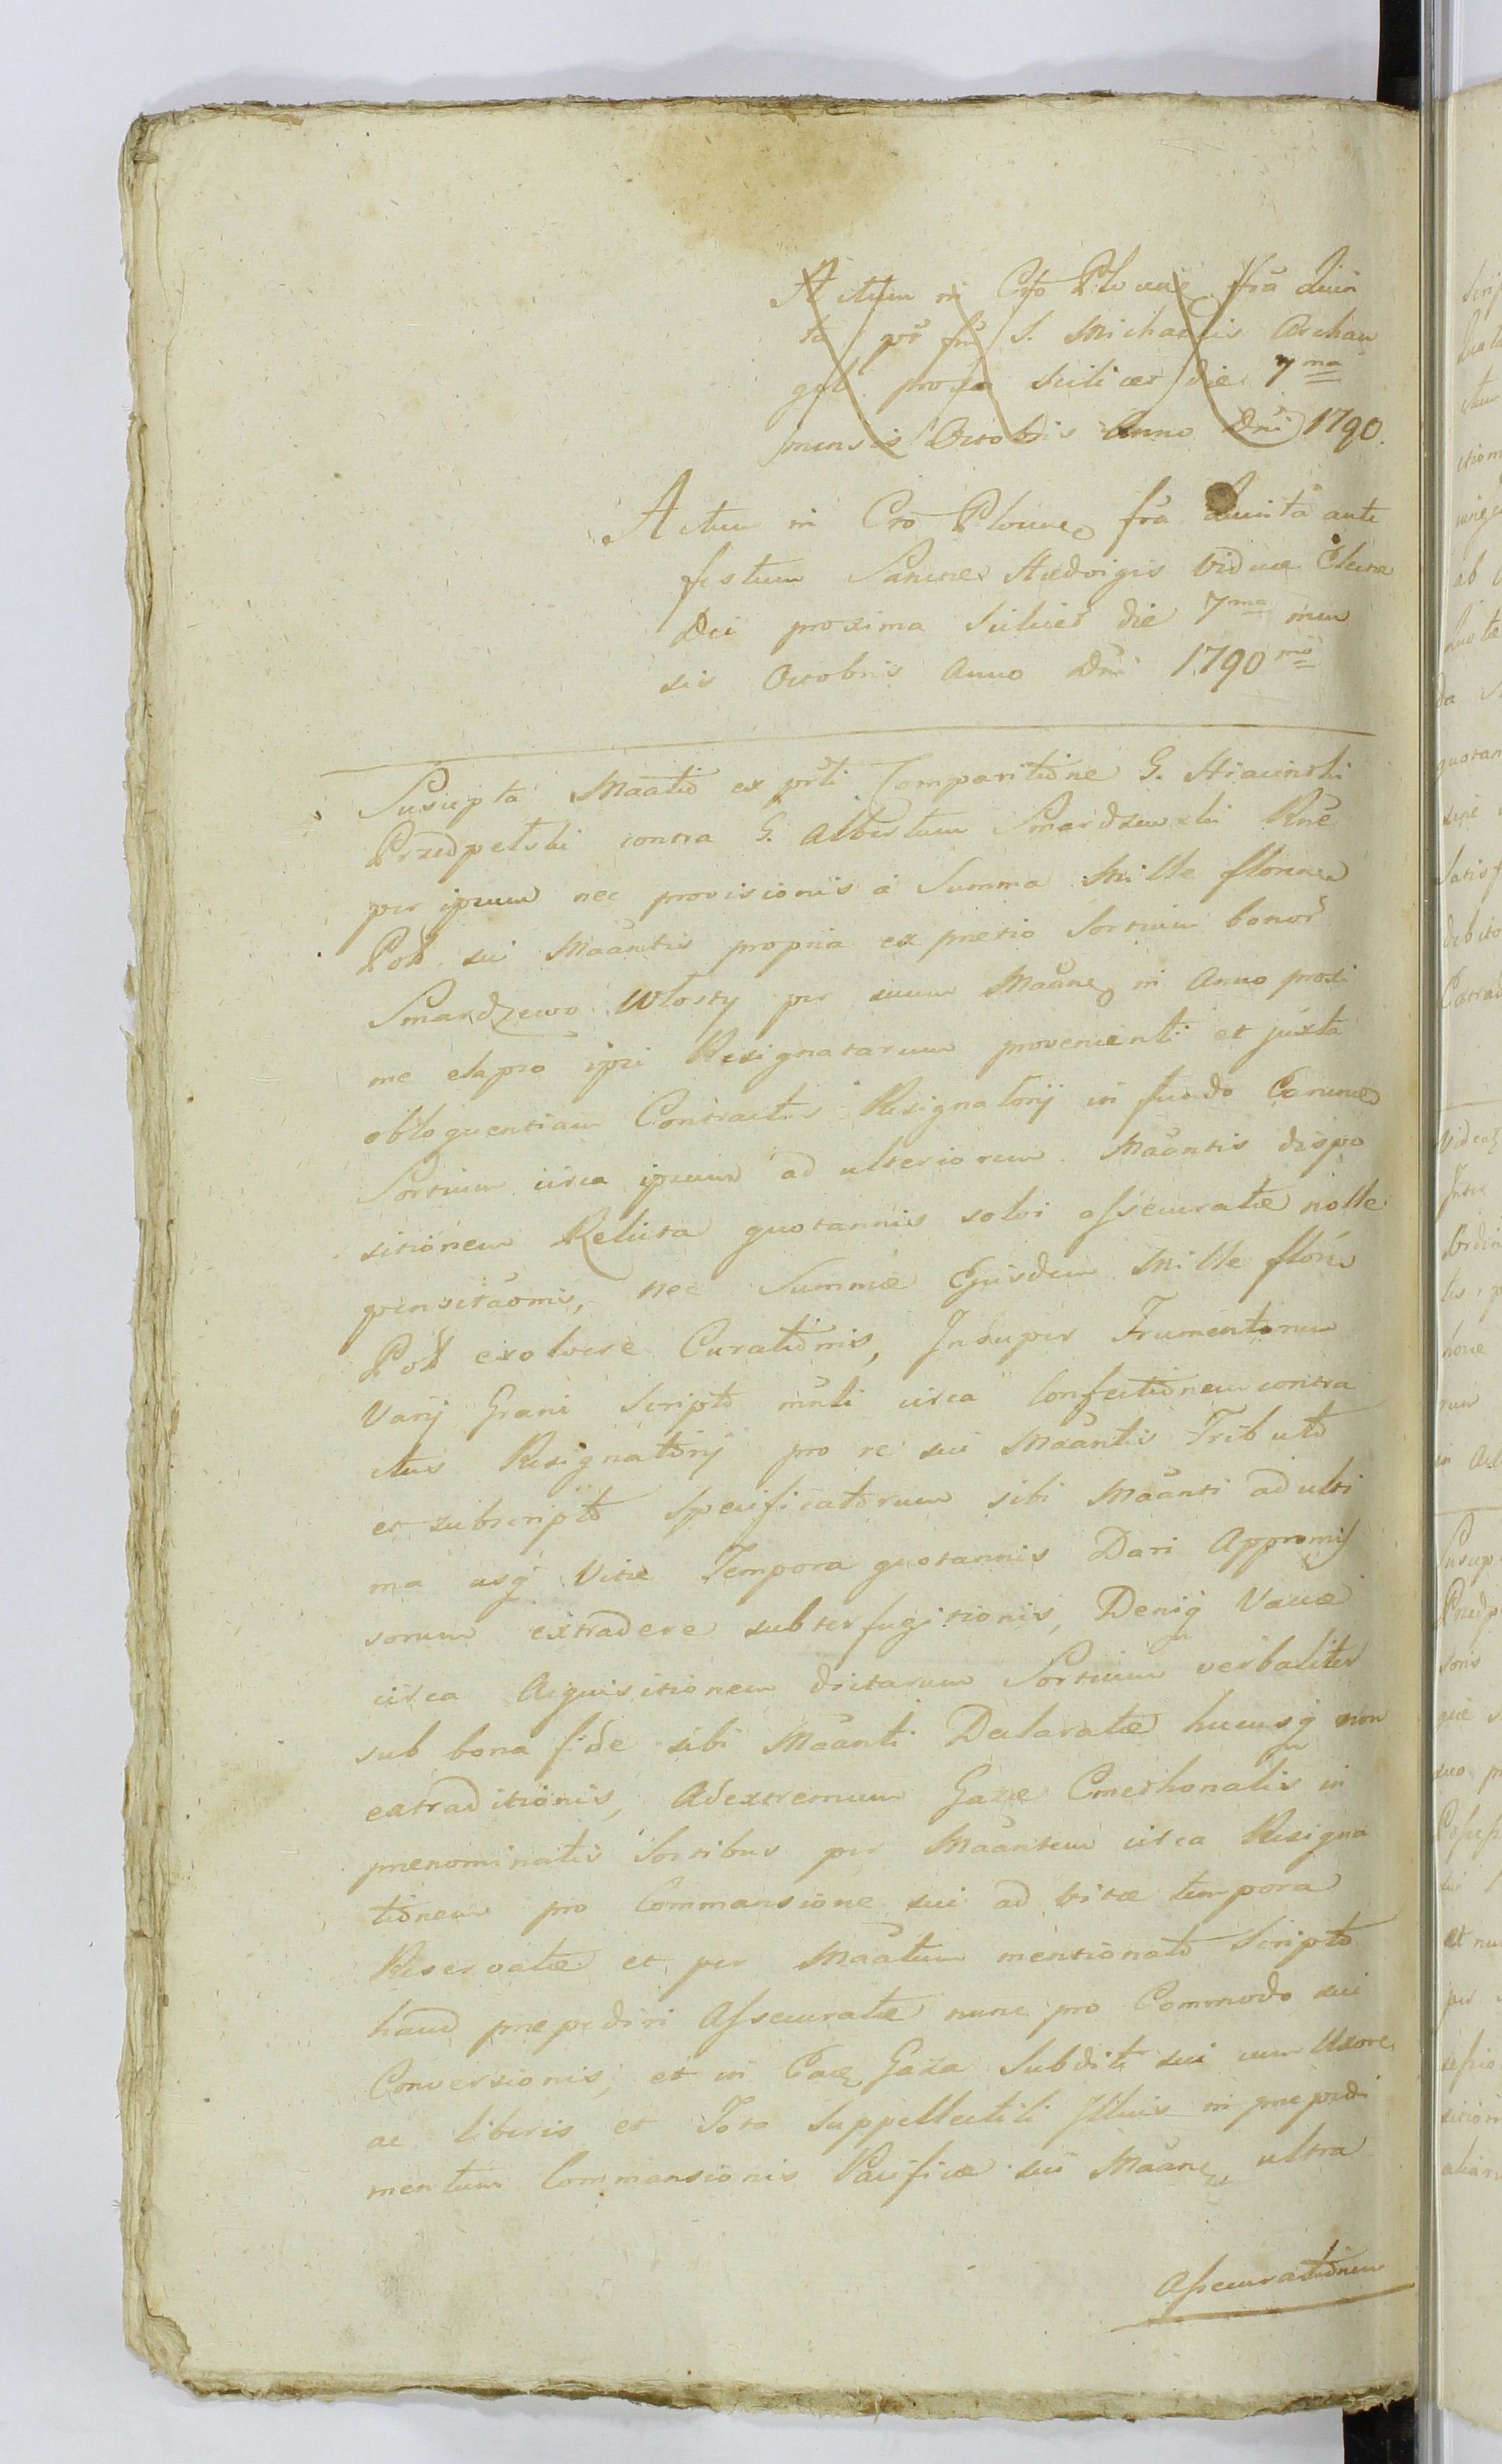 Actum in Cro Plocen. fra Quin
ta pt ftu S. Michaelis Archan
geli proxa scilicet die 7ma
mensis Octobris Anno Dni 1790.
Actum in Cro Plocen. fra Quinta ante
festum Sanctae Hedvigis Viduae Electae
Dei proxima scilicet die 7ma men
sis Octobris Anno Dni 1790mo
Suscepta Maatio ex prti Comparitione G. Hiacinthi
Przedpełski contra G. Albertum Smardzewski Rne
per ipsum nec provisionis a Summa Mille floren.
Pol. sui Maantis propria ex pretio Sortium bonor
Smardzewo Włosty per suum Maane in Anno proxi
me elapso ipsi Resignatarum provenienti et juxta
obloquentiam Contractus Resignatorij in fundo Earum
Sortium circa ipsum ad ulteriorem Maantis dispo
sitionem Relicta quotannis solvi assecuratae nolle
pensitaonis, nec Summae Ejusdem Mille floren
Pol exolvere Curationis, Insuper Frumentorum
Varij Grani Scripto circa Confectionem contra
ctus Resignatorij pro re sui Maantis Tributo
et subscripto Specificatorum sibi Maanti ad ulti
ma usq Vitae Tempora quotannis Dari Appromis
sorum extradere subterfugitionis, Deniq Vaccae
circa Acquisitionem dictarum Sortium verbaliter
sub bona fide sibi Maanti Declaratae hucusq non
extraditionis, Adextremum Gazae Cmethonalis in
praenominatis Sortibus per Maantem circa Resigna
tionem pro Commansione sui ad vitae tempora
Reservatae et per Maatum mentionato Scripto
haud praepediri Assecuratae nunc pro Commodo sui
Conversionis, et in Eaq Gaza Subditi sui cum Uxore
ac liberis et Tota Suppellectili Illius in praepedi
mentum Commansionis Pacificae sui Maane ultra
Assecurationem